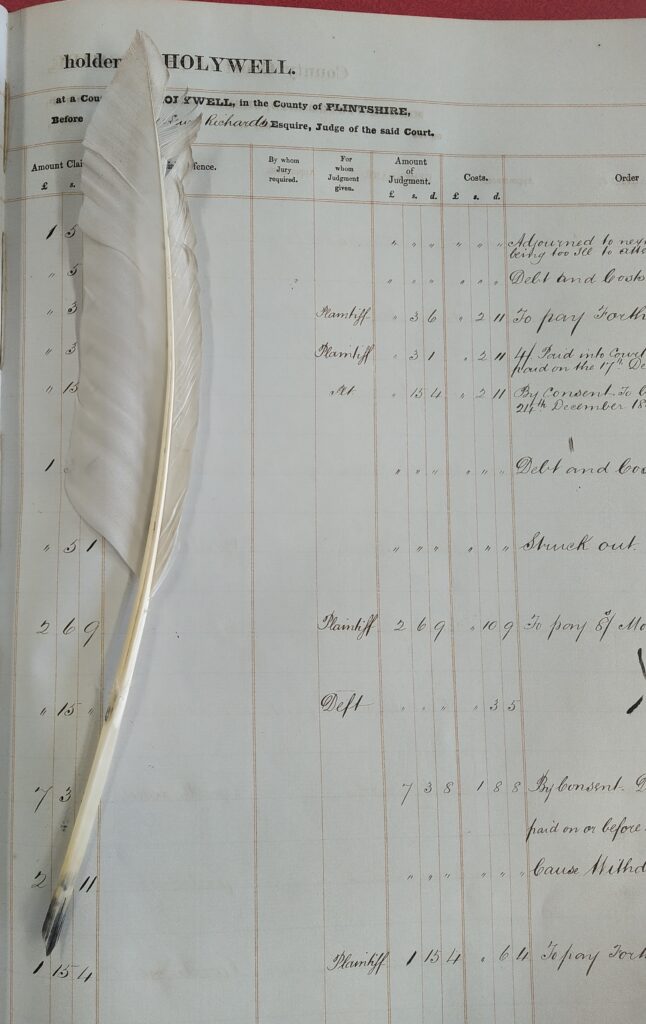 holde HOLYWELL.
at a Cou YWELL, in the County of FLINTSHIRE,
Before Richards Esquire, Judge of the said Court.
Amount Clai fence. By whom Jury required. For whom Judgment given. Amount of Judgment. Costs. Order
£ s. £ s. d. £ s. d.
1 5 " " " " " " Adjourned to nex
being too Ill to atte
" 5 " " " " " " Debt and Costs
" 3 Plaintiff " 3 6 " 2 11 To pay Forth
" 3 Plaintiff " 3 1 " 2 11 4/ Paid into Court
paid on the 17th De
" 15 " 15 4 " 2 11 By Consent To
24th December 18
1 " " " " " " Debt and Cos
" 5 1 " " " " " " Struck out.
2 6 9 Plaintiff 2 6 9 " 10 9 To pay 8/ Mo
" 15 " Deft " " " " 3 5
7 3 7 3 8 1 8 8 By Consent. D
paid on or before
2 11 " " " " " " Cause Withd
1 15 4 Plaintiff 1 15 4 " 6 4 To pay Forth